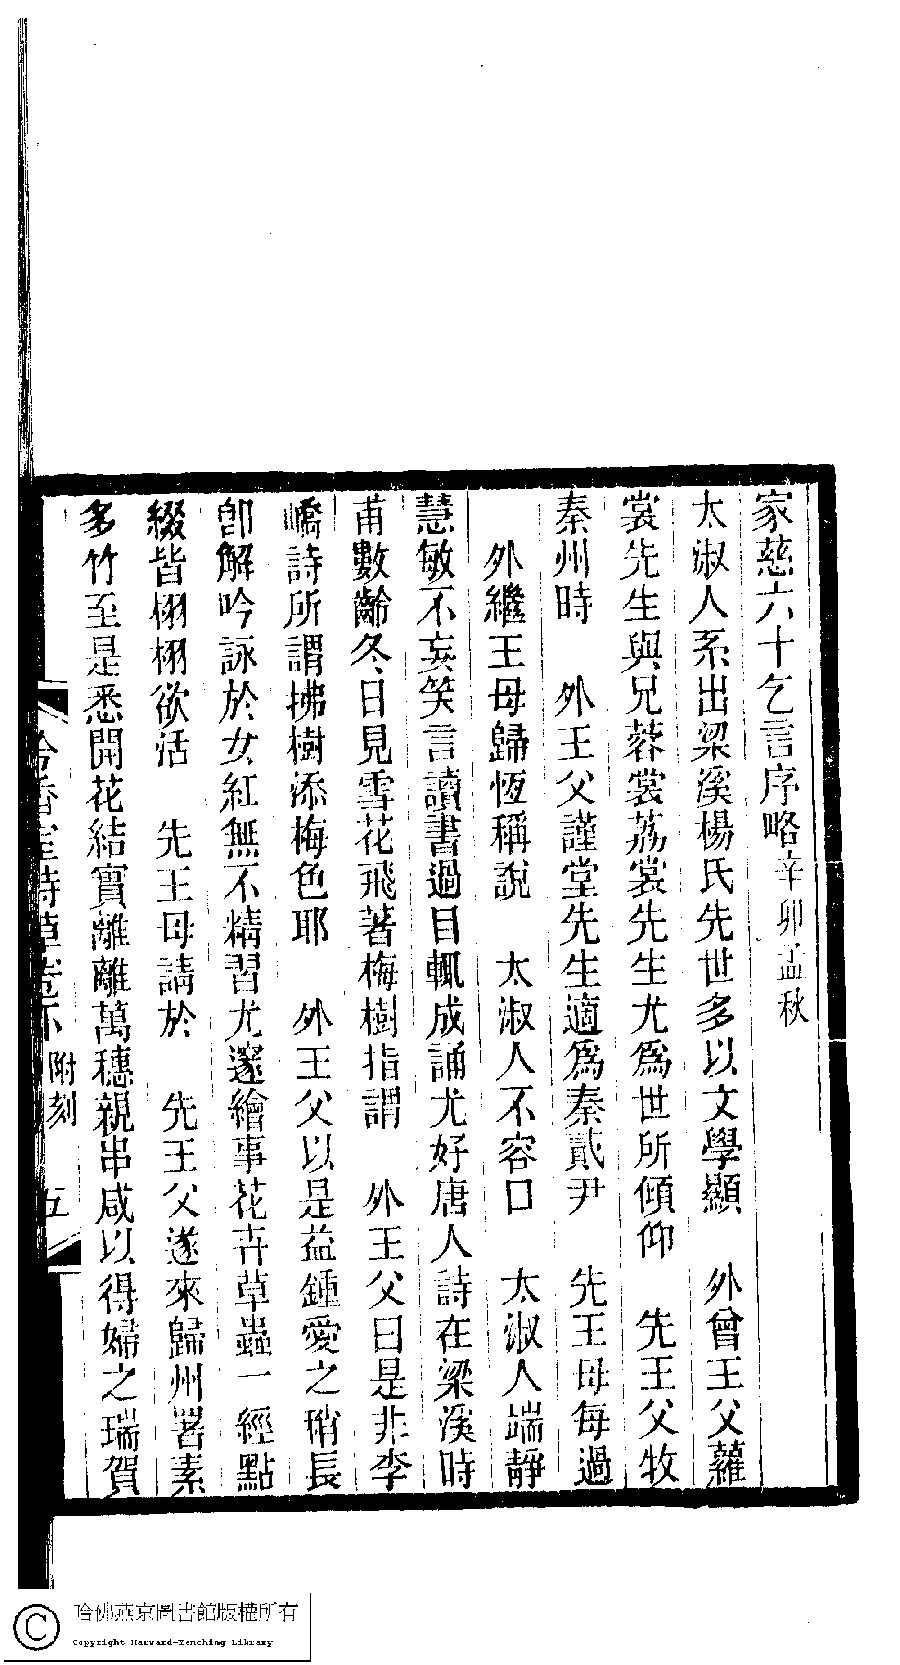 家慈六十乞言序略辛卯孟秋
太淑人系出梁溪楊氏先世多以文學顯　外曾王父蘿
裳先生與兄蓉裳荔裳先生尤爲世所傾仰　先王父牧
秦州時　外王父謹堂先生適爲秦貳尹　先王母每過
外繼王母歸恆稱說　太淑人不容口　太淑人端靜
慧敏不妄笑言讀書過目輒成誦尤好唐人詩在梁溪時
甫數齡冬日見雪花飛著梅樹指謂　外王父曰是非李
嶠詩所謂拂樹添梅色耶　外王父以是益鍾愛之稍長
卽解吟詠於女紅無不精習尤邃繪事花卉草蟲一經點
綴皆栩栩欲活　先王母請於　先王父遂來歸州署素
多竹至是悉開花結實離離萬穗親串咸以得婦之瑞賀
冷香室詩草卷下 附刻 五
哈佛燕京圖書館版權所有
Copyright Harvard-Yenching Library